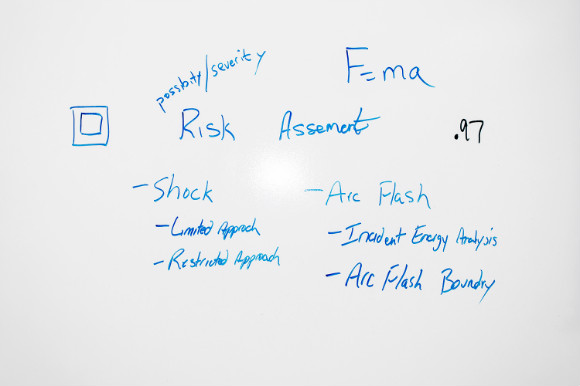 possibity/severity
F=ma
Risk Assement
.97
-Shock
-Limited Approch
-Restricted Approach
-Arc Flash
-Incident Energy Analysis
-Arc Flash Boundry